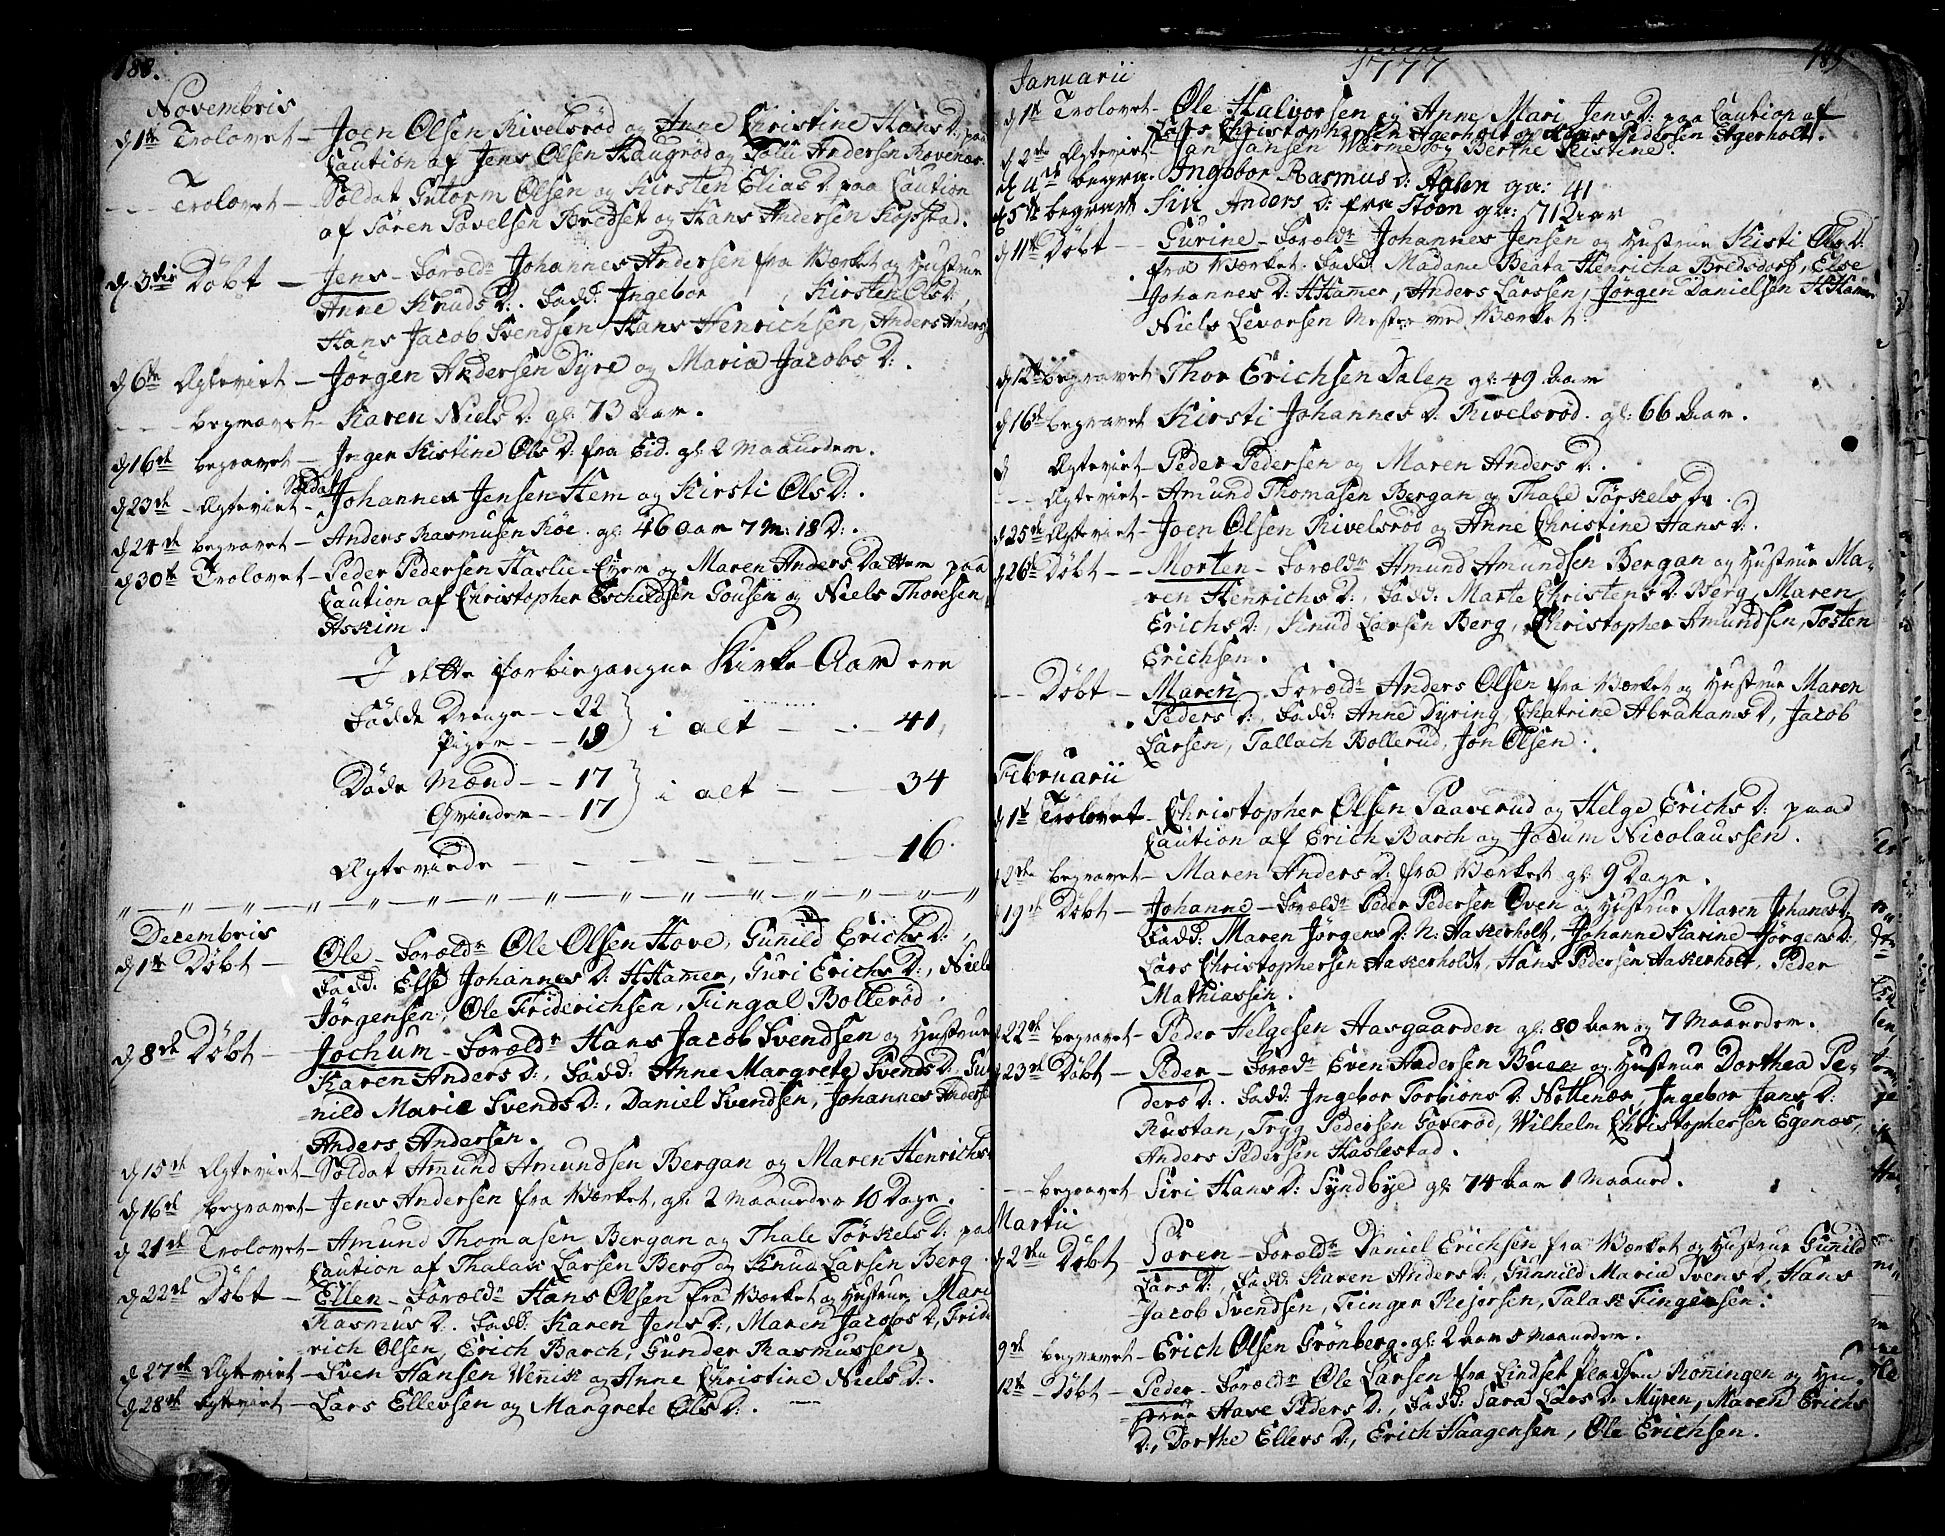 188.
Novembris
d 1te Trolovet – Joen Olsen Rivelsrød og Anne Christine Hans D: paa
Caution af Jens Olsen Haugrød og Andersen
– – Trolovet – Soldat Gutorm Olsen og Kirsten Elias D: paa Caution
af Sören Pavelsen og Hans Andersen Kopstad.
d 3die Döbt – Jens – Forældr Johannes Andersen fra Værket og Hustrue
Anne Knuds D:. Fadd: Ingebor , Kirsten Ols D:,
Hans Jacob Svendsen, Hans Henrichsen, Anders Anders
d 6te Ægteviet – Jörgen Andersen Dyre og Maria Jacobs D:.
– – begravet – Karen Niels D: gl: 73 Aar.
d 16de begravet – Inger Kistine Ols D: fra Eid. gl: 2 Maaneder.
d 23de – Ægteviet – Soldat Johannes Jensen Hem og Kirsti Ols D:.
d 24de begravet – Anders Rasmusen Röe. gl: 46 Aar 7 M: 18 D:.
d 30te Trolovet – Peder Pedersen Haslie-Eyer og Maren Anders Datter paa
Caution af Christopher Eschildsen Gousen og Niels Thoresen
Askim.
I dette forbiegangne Kirke-Aar ere
Födde Drenge – – 22
Piger – – 19 i alt – – – 41,
Döde Mænd – – 17
Qvinder – – 17 i alt – – – 34
Ægteviede – – – – – – – 16.
Decembris
d 1te Döbt – Ole – Forældr Ole Olsen Hove, Gunild Erichs D:,
Fadd: Else Johannes D: HHamer, Guri Erichs D:, Niels
Jörgensen, Ole Friderichsen, Fingal Bollerød.
d 8de Döbt – Jochum – Forældr Hans Jacob Svendsen og Hustrue
Karen Anders D:, Fadd: Anne Margrete Svends D: Gu
nild Marie Svends D:, Daniel Svendsen, Johannes Andersen
Anders Andersen.
d 15de Ægteviet – Soldat Amund Amundsen Bergan og Maren Henrichs
d 16de begravet – Jens Andersen fra Værket, gl: 2 Maaneder 10 Dage.
d 21de Trolovet – Amund Thomasen Bergan og Thale Törkels D: paa
Caution af Thalak Larsen Berg og Knud Larsen Berg.
d 22de Döbt – Ellen – Forældr Hans Olsen fra Værket og Hustrue Mari
Rasmus D:. Fadd: Karen Jens D:, Maren Jacobs D:, Frid
rich Olsen, Erich Barch, Gunder Rasmussen,
d 27de Ægteviet – Sven Hansen Wenisk og Anne Christine Niels D:.
d 28de Ægteviet – Lars Ellevsen og Margrete Ols D:. –
1777 189
Januarii
d 1te Trolovet – Ole Halvorsen og Anne Mari Jens D: paa Caution af
Lars Christophersen Agerholt og Hans Pedersen Agerholt.
d 2de Ægteviet – Jan Jansen Warme og Berthe Kistine.
d 4de begra. Ingebor Rasmus D: Holen gl: 41
d 5te begravet Siri Anders D: fra Stoen gl: 71 Aar
d 11te Döbt – – Gurine – Forældr Johannes Jensen og Hustrue Kisti Ols D:
fra Værket. Fadd: Madame Beata Henricha Bredsdorf, Else
Johannes D: HHamer, Anders Larssen, Jörgen Danielsen HHamer
Niels Levorsen Mester ved Værket.
d 12te begravet Thor Erichsen Dalen gl: 49 Aar
d 16de begravet Kirsti Johannes D. Rivelsrød. gl: 66 Aar.
d Ægteviet – Peder Pedersen og Maren Anders D:.
– – Ægteviet – Amund Thomasen Bergan og Thale Törkels D:.
d 25de Ægteviet – Joen Olsen Rivelsrød og Anne Christine Hans D.
d 26de Döbt – – Morten – Forældr Amund Amundsen Bergan og Hustrue Ma-
ren Henrichs D:, Fadd: Marte Christens D: Berg, Maren
Erichs D:, Knud Larsen Berg, Christopher Amundsen, Tosten
Erichsen.
– – Döbt – Maren – Forældr Anders Olsen fra Værket og Hustrue Maren
Peders D:, Fadd: Anne Dyring, Chatrine Abrahams D, Jacob
Larsen, Tallach Bollerud, Jon Olsen.
Februarii
d 1te Trolovet – Christopher Olsen Paaverud og Helge Erichs D: paa
Caution af Erich Barch og Jocum Nicolaussen.
d 2de begravet – Maren Anders D: fra Værket gl: 9 Dage.
d 19de Döbt – Johanne – Forældr Peder Pedersen Oven og Hustrue Maren Johanes D,
Fadd: Maren Jörgens D: N: Aakerholt, Johanne Karine Jörgens D:,
Lars Christophersen Aakerholdt, Hans Pedersen Aakerholt, Peder
Mathiassen.
d 22de begravet – Peder Helgesen Aasgaarden gl: 80 Aar og 7 Maaneder.
d 23de Döbt – Peder – Forældr Even Andersen Buen og Hustrue Dorthea Pe-
ders D:. Fadd: Ingebor Torbions D: Nottenes, Ingebor Jans D:
Rustan, Trygg Pedersen Goverød, Wilhelm Christophersen Egenæs,
Anders Pedersen Haslestad.
– – begravet Siri Hans D: Syndbye gl: 74 Aar 1 Maaned.
Martii
d 2den Döbt – Sören – Forældr Daniel Erichsen fra Værket og Hustrue Gunild
Lars D:, Fadd: Karen Anders D:, Gunnild Maria Svens D, Hans
Jacob Svendsen, Finger Rejersen, Talak Fingersen.
9de begravet – Erich Olsen Grönberg. gl: 2 Aar 8 Maaneder.
12te – Döbt – Peder – Forældr Ole Larsen fra Lindset Pladsen Röningen og Hu-
strue Aase Peders D:, Fadd: Sara Lars D: Myren, Maren Erichs
D:, Dorthe Ellers D:, Erich Haagensen, Ole Erichsen.